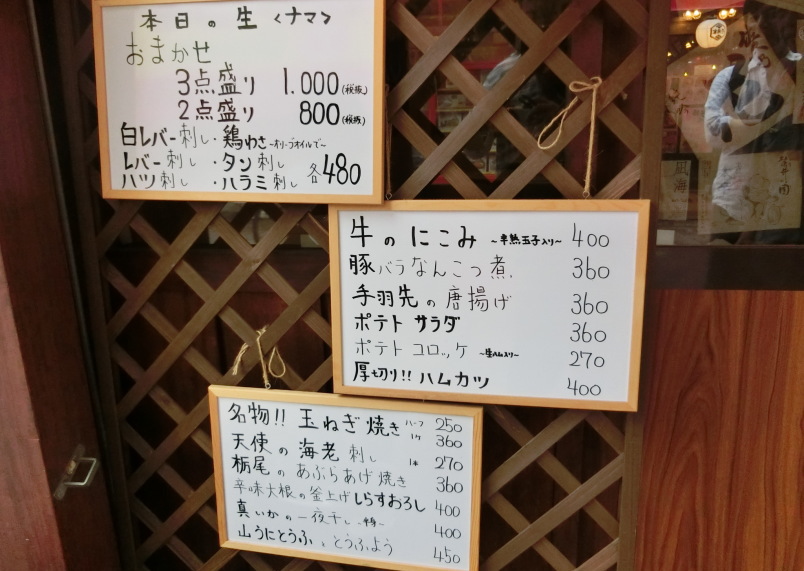 本日の生〈ナマ〉
おまかせ
3点盛り 1.000(税抜)
2点盛り 800(税抜)
白レバー刺し・鶏わさ~オリーブオイルで~
レバー刺し・タン刺し
ハツ刺し・ハラミ刺し 各480
牛のにこみ ~半熟玉子入り~ 400
豚バラなんこつ煮. 360
手羽先の唐揚げ 360
ポテトサラダ 360
ポテトコロッケ ~生ハム入り~ 270
厚切り!! ハムカツ 400
名物!! 玉ねぎ焼き ハーフ 250
1ケ 360
天使の海老刺し 1本 270
栃尾のあぶらあげ焼き 360
辛味大根の釜上げしらすおろし 400
真いかの一夜干し 400
山うにとうふ、とうふよう 450